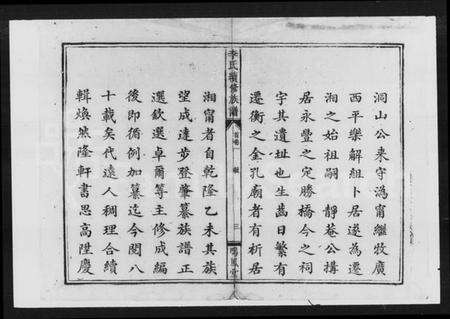 洞山公來守潙甯繼牧廣
西平樂解組卜居遂為遷
湘之始祖嗣 靜菴公搆
居永豐之定勝橋今之祠
宇其遺址也生齒日繁有
遷衡之金孔廟者有析居
李氏續修族譜
三
鳴鳳堂
湘甯者自乾隆乙未其族
望成達步登肇纂族譜正
選欽選卓爾等主修成編
後即循例加纂迄今閱八
十載矣代遠人稠理合續
輯煥然隆軒書思高陞慶